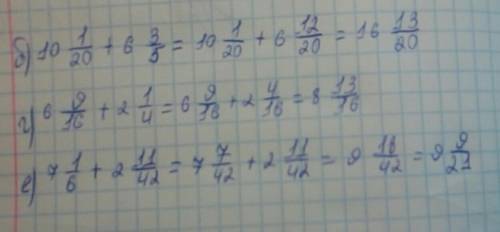 б) 10 1/20 + 6 3/5 = 10 1/20 + 6 12/20 = 16 13/20
г) 6 9/16 + 2 1/4 = 6 9/16 + 2 4/16 = 8 13/16
е) 7 1/6 + 2 11/42 = 7 7/42 + 2 11/42 = 9 18/42 = 9 9/21